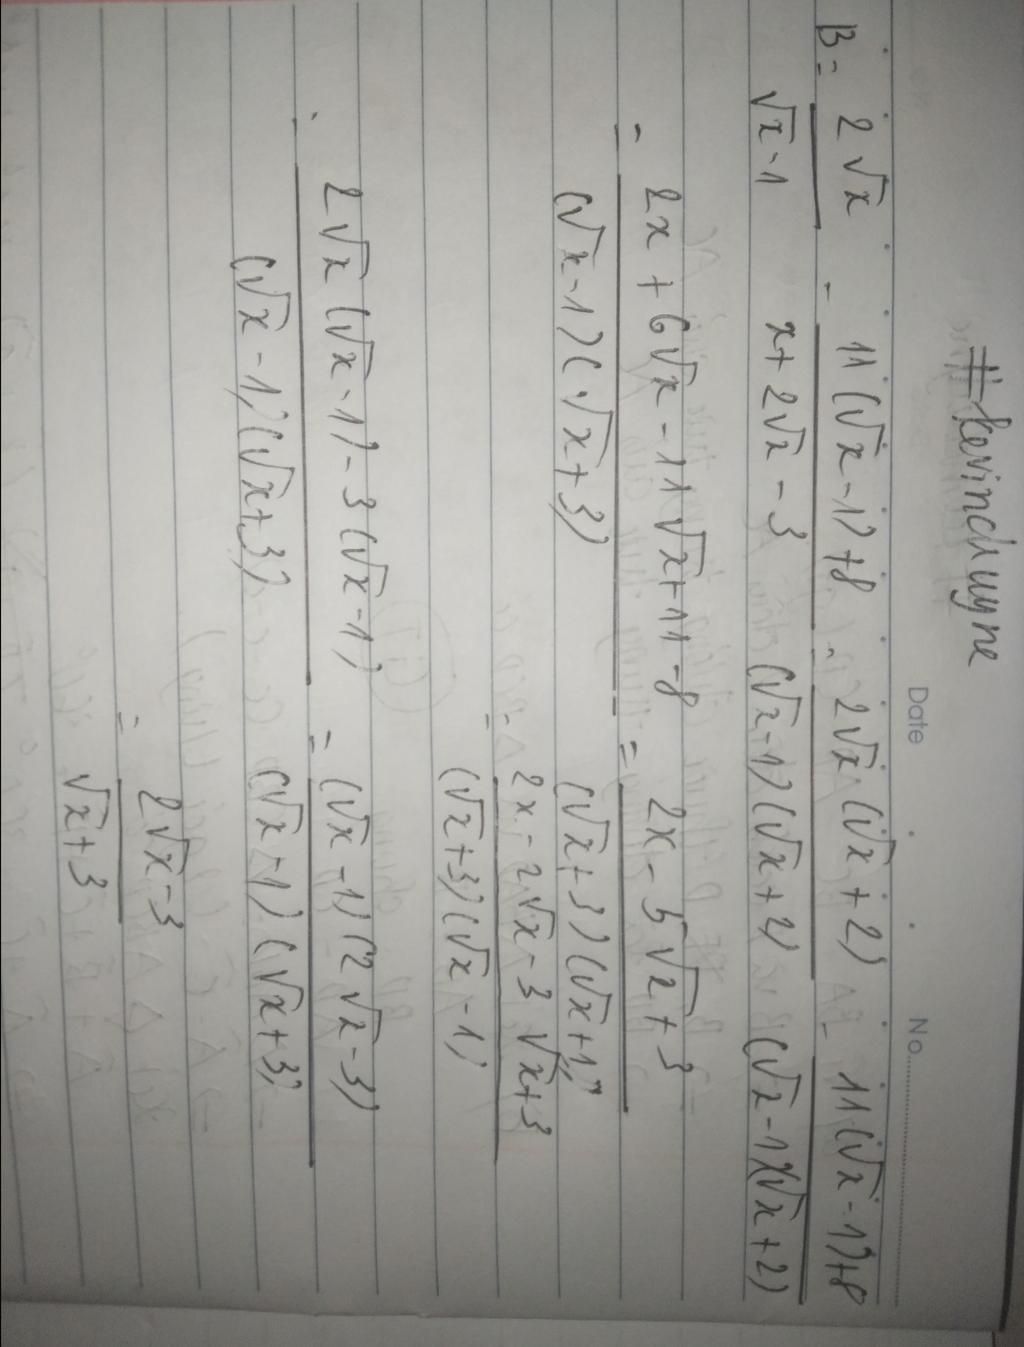 #kevinchuyne
Date No.
B = 2√x / √x - 1 - 11(√x - 1) + 8 / x + 2√x - 3 = 2√x (√x + 2) / (√x - 1)(√x + 2) - 11(√x - 1) + 8 / (√x - 1)(√x + 2)
= 2x + 6√x - 11√x + 11 - 8 / (√x - 1)(√x + 3) = 2x - 5√x + 3 / (√x + 3)(√x + 1)
= 2x - 2√x - 3√x + 3 / (√x + 3)(√x - 1)
= 2√x (√x - 1) - 3(√x - 1) / (√x - 1)(√x + 3) = (√x - 1)(2√x - 3) / (√x - 1)(√x + 3)
= 2√x - 3 / √x + 3